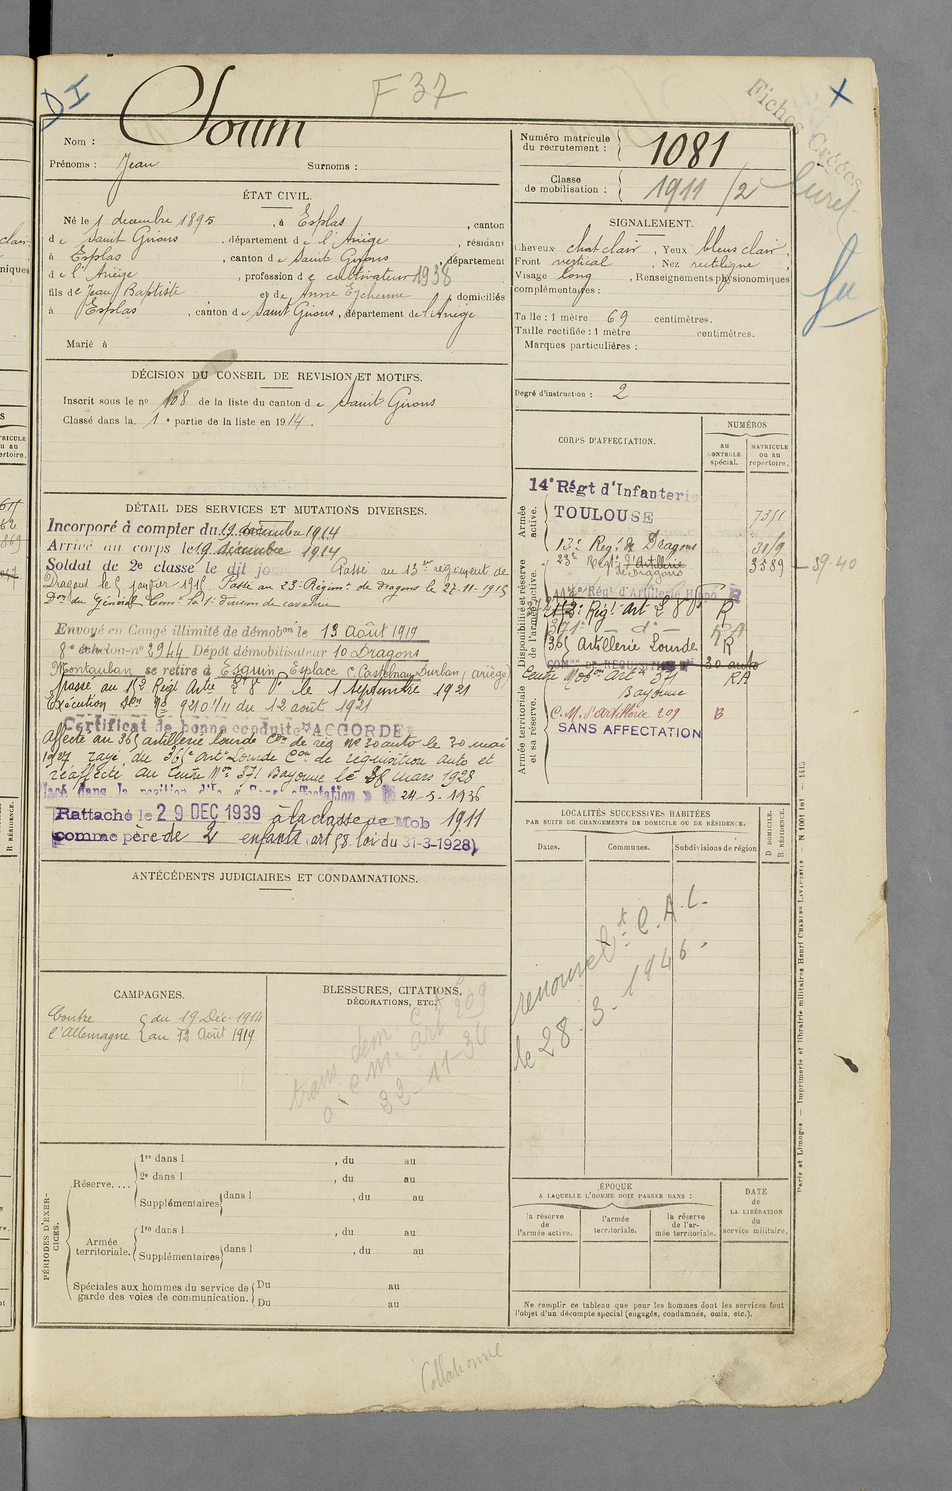 F 37
Soum
Nom :
Prénoms : Jean Surnoms :
Numéro matricule du recrutement : 1081
Classe de mobilisation : 1911/2
Fiches Créées
ÉTAT CIVIL.
Né le 1 décembre 1895, à Esplas, canton
de Saint Girons, département de l'Ariège, résidant
à Esplas, canton de Saint Girons, département
de l'Ariège, profession de cultivateur 1938
fils de Jean Baptiste et de Anne Eychenne, domiciliés
à Esplas, canton de Saint Girons, département de l'Ariège
Marié à
SIGNALEMENT.
Cheveux chat clair, Yeux bleus clair,
Front vertical, Nez rectiligne,
Visage long, Renseignements physionomiques
complémentaires :
Taille : 1 mètre 69 centimètres.
Taille rectifiée : 1 mètre centimètres.
Marques particulières :
Degré d'instruction : 2
DÉCISION DU CONSEIL DE REVISION ET MOTIFS.
Inscrit sous le no 108 de la liste du canton de Saint Girons
Classé dans la 1e partie de la liste en 1914.
DÉTAIL DES SERVICES ET MUTATIONS DIVERSES.
Incorporé à compter du 19 décembre 1914
Arrivé au corps le 19 décembre 1914
Soldat de 2e classe le dit jour Passé au 13me régiment de
Dragons le 5 janvier 1915 Passé au 23e Régimt de Dragons le 27-11-1915
Don du Général Comt la 1e division de cavalerie
Envoyé en Congé illimité de démobon le 13 Août 1919
8e échelon no 2944 Dépôt démobilisateur 10 Dragons
Montauban se retire à Esquin, Esplace c. Castelnau Durban (ariège)
passé au 112 Régt Artie L P le 1 Septembre 1921
Exécution Don No 9210 1/11 du 12 août 1921
Certificat de bonne conduite "ACCORDÉ"
Affecté au 365 artillerie lourde Con de réq No 30 auto le 30 mai
1927 rayé du 365e Artie Lourde Con de réquisition auto et
réaffecté au Centre Mon 371 Bayonne le 28 mars 1928
24-5-1936
Rattaché le 29 DEC 1939 à la classe de Mob 1911
comme père de 2 enfants (art 58 loi du 31-3-1928)
CORPS D'AFFECTATION.
NUMÉROS
AU CONTROLE spécial.
MATRICULE ou au répertoire.
Armée active.
14e Régt d'Infanterie
TOULOUSE 7351
13e Régt de Dragons
23e Régt d'Artillerie de Dragons 3589 — 39-40
Disponibilité et réserve de l'armée active.
365 Artillerie Lourde R
COMon DE REQUISITION No 30 auto
Centre Mobon Art 371 RA
Bayonne
Armée territoriale et sa réserve.
C.M. d'artillerie 209 B
SANS AFFECTATION
LOCALITÉS SUCCESSIVES HABITÉES
PAR SUITE DE CHANGEMENTS DE DOMICILE OU DE RÉSIDENCE.
Dates. Communes. Subdivisions de région
D DOMICILE.
R RÉSIDENCE.
renouvelt C.A.C.
le 28-3-1946.
ANTÉCÉDENTS JUDICIAIRES ET CONDAMNATIONS.
CAMPAGNES.
Contre l'Allemagne
du 19 Déc. 1914
au 12 Août 1919
BLESSURES, CITATIONS,
DÉCORATIONS, ETC.
PÉRIODES D'EXERCICES.
Réserve....
1re dans l , du au
2e dans l , du au
Supplémentaires dans l , du au
Armée territoriale.
1re dans l , du au
Supplémentaires dans l , du au
Spéciales aux hommes du service de garde des voies de communication.
Du au
Du au
ÉPOQUE
A LAQUELLE L'HOMME DOIT PASSER DANS :
la réserve de l'armée active.
l'armée territoriale.
la réserve de l'armée territoriale.
DATE de LA LIBÉRATION du service militaire.
Ne remplir ce tableau que pour les hommes dont les services font
l'objet d'un décompte spécial (engagés, condamnés, omis, etc.).
Paris et Limoges. — Imprimerie et librairie militaires Henri CHARLES-LAVAUZELLE
Collationné